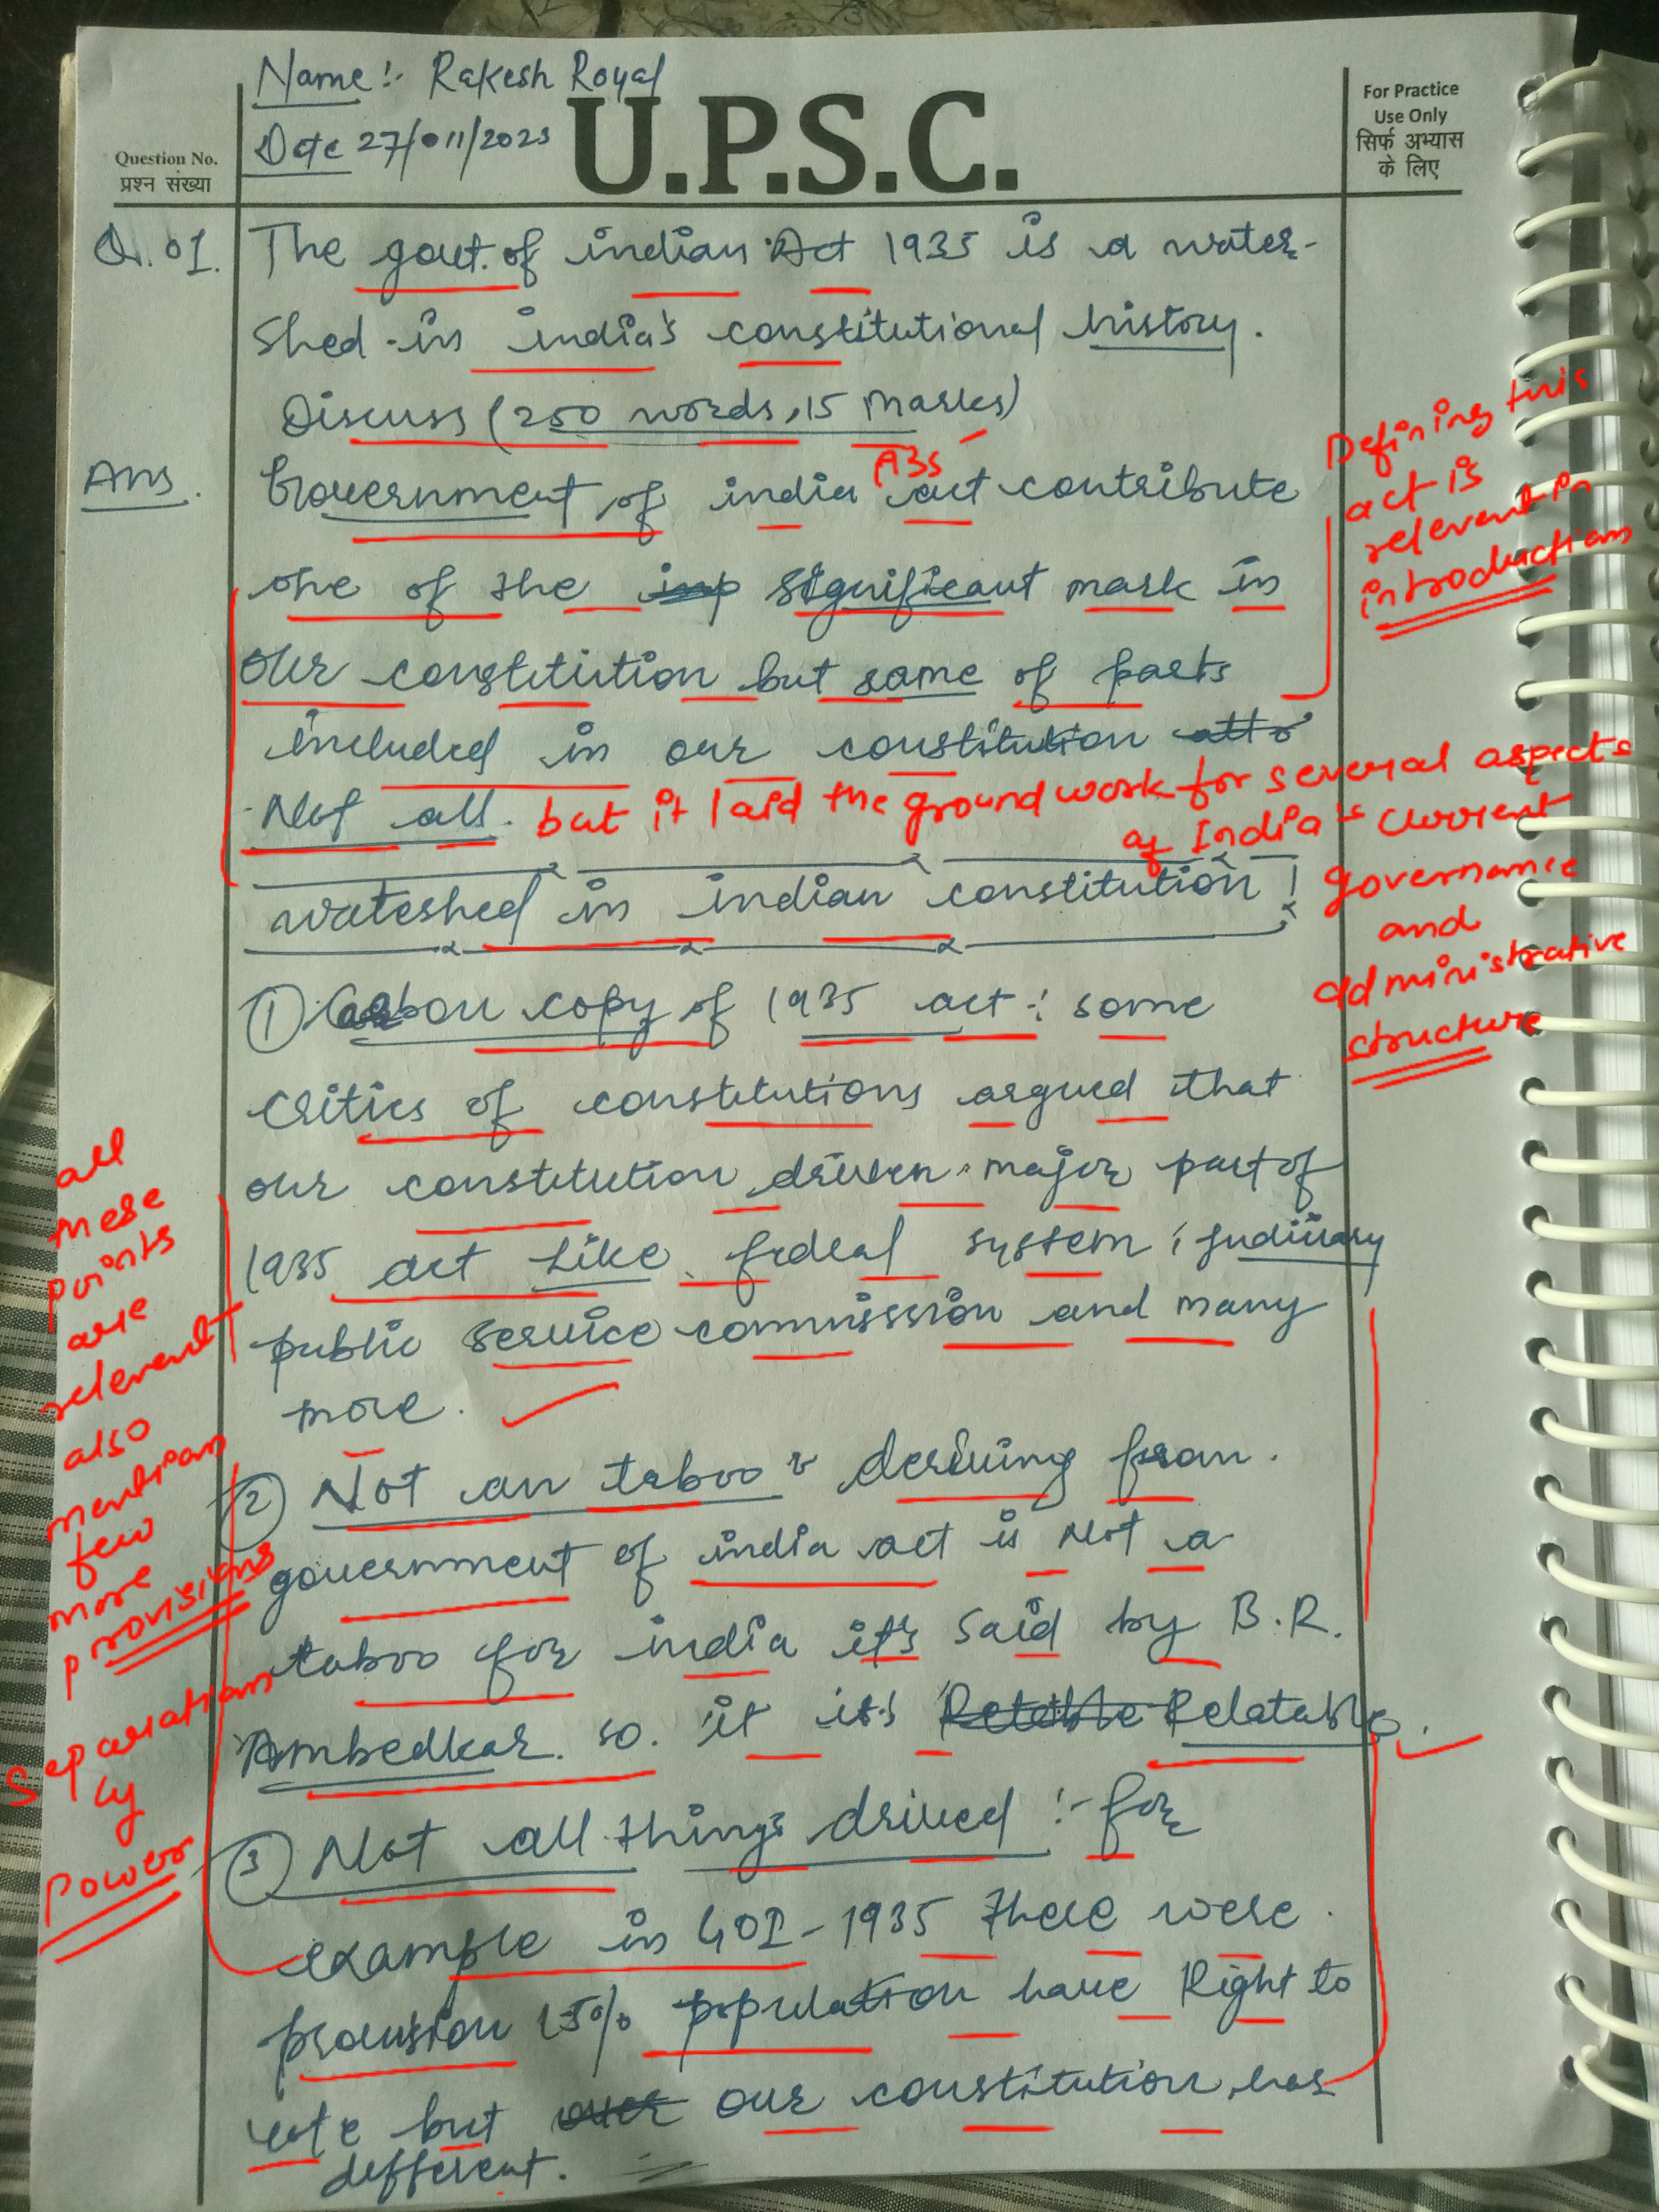 Name:- Rakesh Royal
Date 27/011/2023
U.P.S.C.
For Practice
Use Only
सिर्फ अभ्यास
के लिए
Question No.
प्रश्न संख्या
Q. 01. The govt. of indian Act 1935 is a water-
shed in india's constitutional history.
Discuss (250 words, 15 Marks)
A35
Ans. Government of india act contribute
one of the imp significant mark in
our constitution but same of parts
included in our constitution
Not all. but it laid the groundwork for several aspects
of India's current
governance
and
administrative
structure
Defining this
act is
relevent in
introduction
wateshed in indian constitution :
① Carbon copy of 1935 act : some
critics of constitutions argued that
our constitution driven major part of
1935 act like fedeal system, judiciary
public service commission and many
more.
② Not an taboo : deriving from
government of india act is Not a
taboo for india it's said by B.R.
Ambedkar. so. it is Relatable.
③ Not all things drived :- for
example in GOI-1935 there were
provision 15% population have Right to
vote but over our constitution has
different.
all
these
points
are
relevent
also
mention
few
more
provisions
Separation
Power